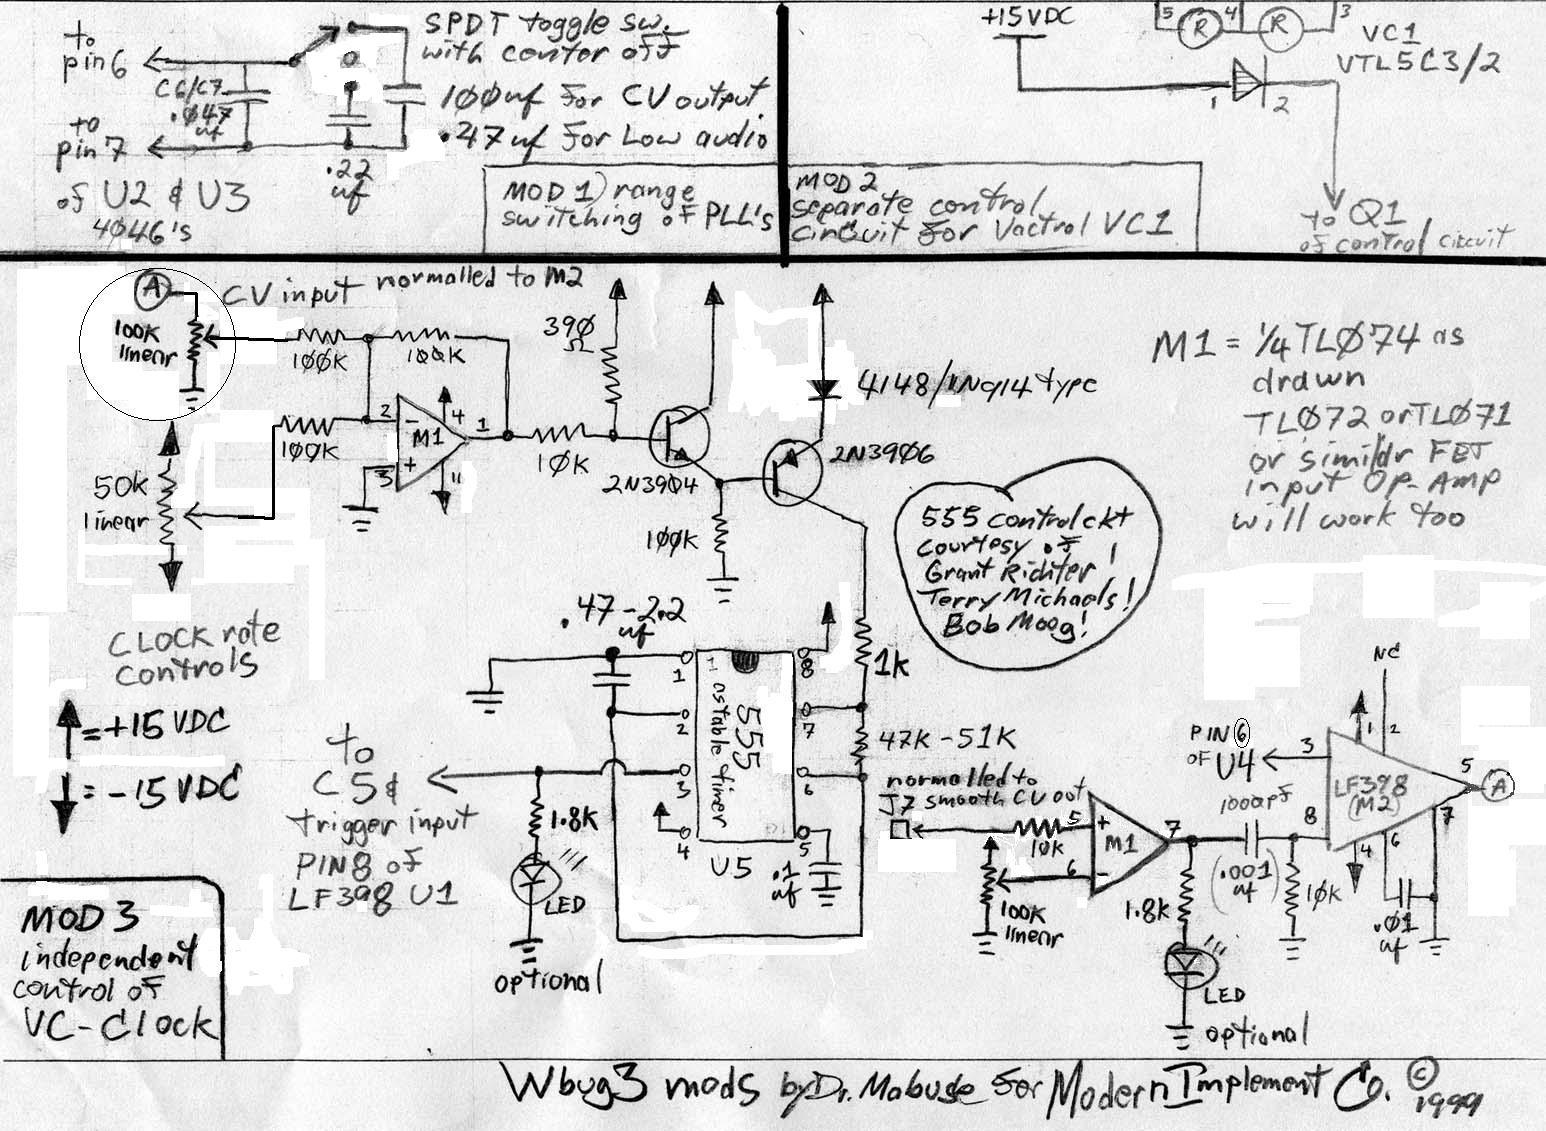 to
pin 6
C6/C7
.047
uf
to
pin 7
of U2 & U3
4046's
SPDT toggle sw.
with center off
100uf for CV output
.47uf for Low audio
.22
uf
MOD 1) range
switching of PLL's
+15VDC
5
R
4
R
3
VC1
VTL5C3/2
1
2
MOD 2
separate control
circuit for Vactrol VC1
to Q1
of control circuit
A
CV input normalled to M2
100K
linear
100K
100K
100K
2
-
M1
4
1
+
3
11
50k
linear
10K
390
Ω
2N3904
100K
4148/1N914 type
2N3906
M1 = 1/4 TL074 as
drawn
TL072 or TL071
or similar FET
input Op-Amp
will work too
555 control ckt
courtesy of
Grant Richter!
Terry Michaels!
Bob Moog!
CLOCK rate
controls
= +15 VDC
= -15 VDC
.47-2.2
uf
1
2
3
4
8
7
6
5
555
astable timer
U5
.1
uf
1k
47K-51K
to
C5 &
trigger input
PIN 8 of
LF398 U1
1.8K
LED
optional
normalled to
J7 smooth CV out
10K
5
+
M1
7
6
-
100K
linear
1.8K
LED
optional
1000pf
(.001
uf)
10K
PIN 6
OF U4
NC
3
1
2
5
A
LF398
(M2)
8
4
6
7
.01
uf
MOD 3
independent
control of
VC-Clock
Wbug3 mods by Dr. Mabuse for Modern Implement Co. © 1999